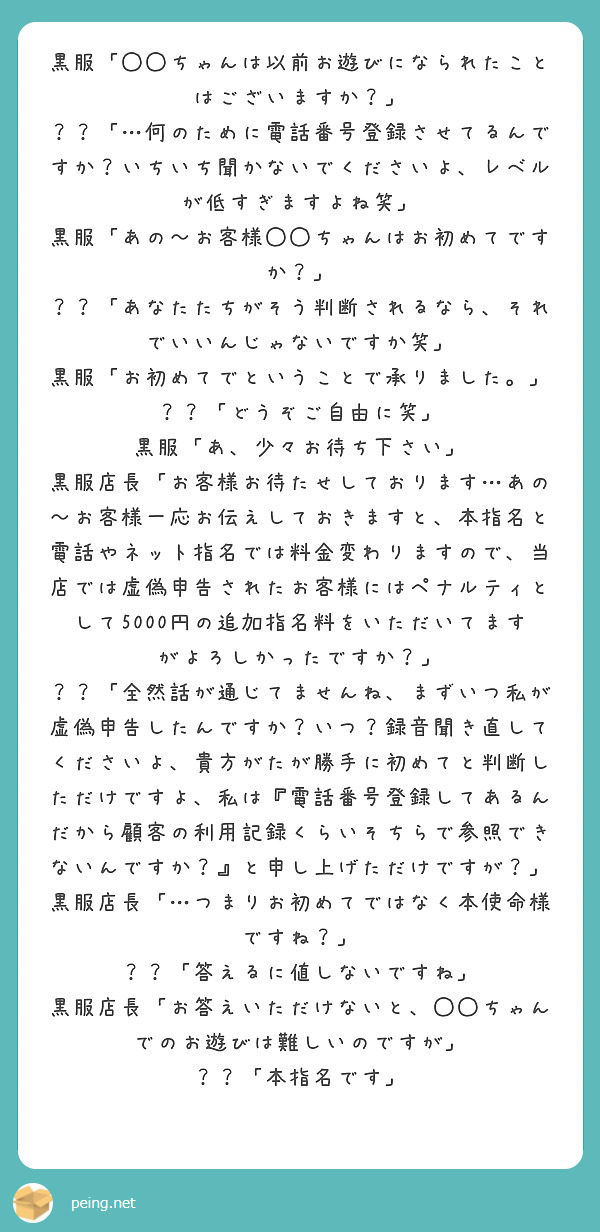 黒服「〇〇ちゃんは以前お遊びになられたこと
はございますか？」
？？「…何のために電話番号登録させてるんで
すか？いちいち聞かないでくださいよ、レベル
が低すぎますよね笑」
黒服「あの～お客様〇〇ちゃんはお初めてです
か？」
？？「あなたたちがそう判断されるなら、それ
でいいんじゃないですか笑」
黒服「お初めてでということで承りました。」
？？「どうぞご自由に笑」
黒服「あ、少々お待ち下さい」
黒服店長「お客様お待たせしております…あの
～お客様一応お伝えしておきますと、本指名と
電話やネット指名では料金変わりますので、当
店では虚偽申告されたお客様にはペナルティと
して5000円の追加指名料をいただいてます
がよろしかったですか？」
？？「全然話が通じてませんね、まずいつ私が
虚偽申告したんですか？いつ？録音聞き直して
くださいよ、貴方がたが勝手に初めてと判断し
ただけですよ、私は『電話番号登録してあるん
だから顧客の利用記録くらいそちらで参照でき
ないんですか？』と申し上げただけですが？」
黒服店長「…つまりお初めてではなく本使命様
ですね？」
？？「答えるに値しないですね」
黒服店長「お答えいただけないと、〇〇ちゃん
でのお遊びは難しいのですが」
？？「本指名です」
peing.net